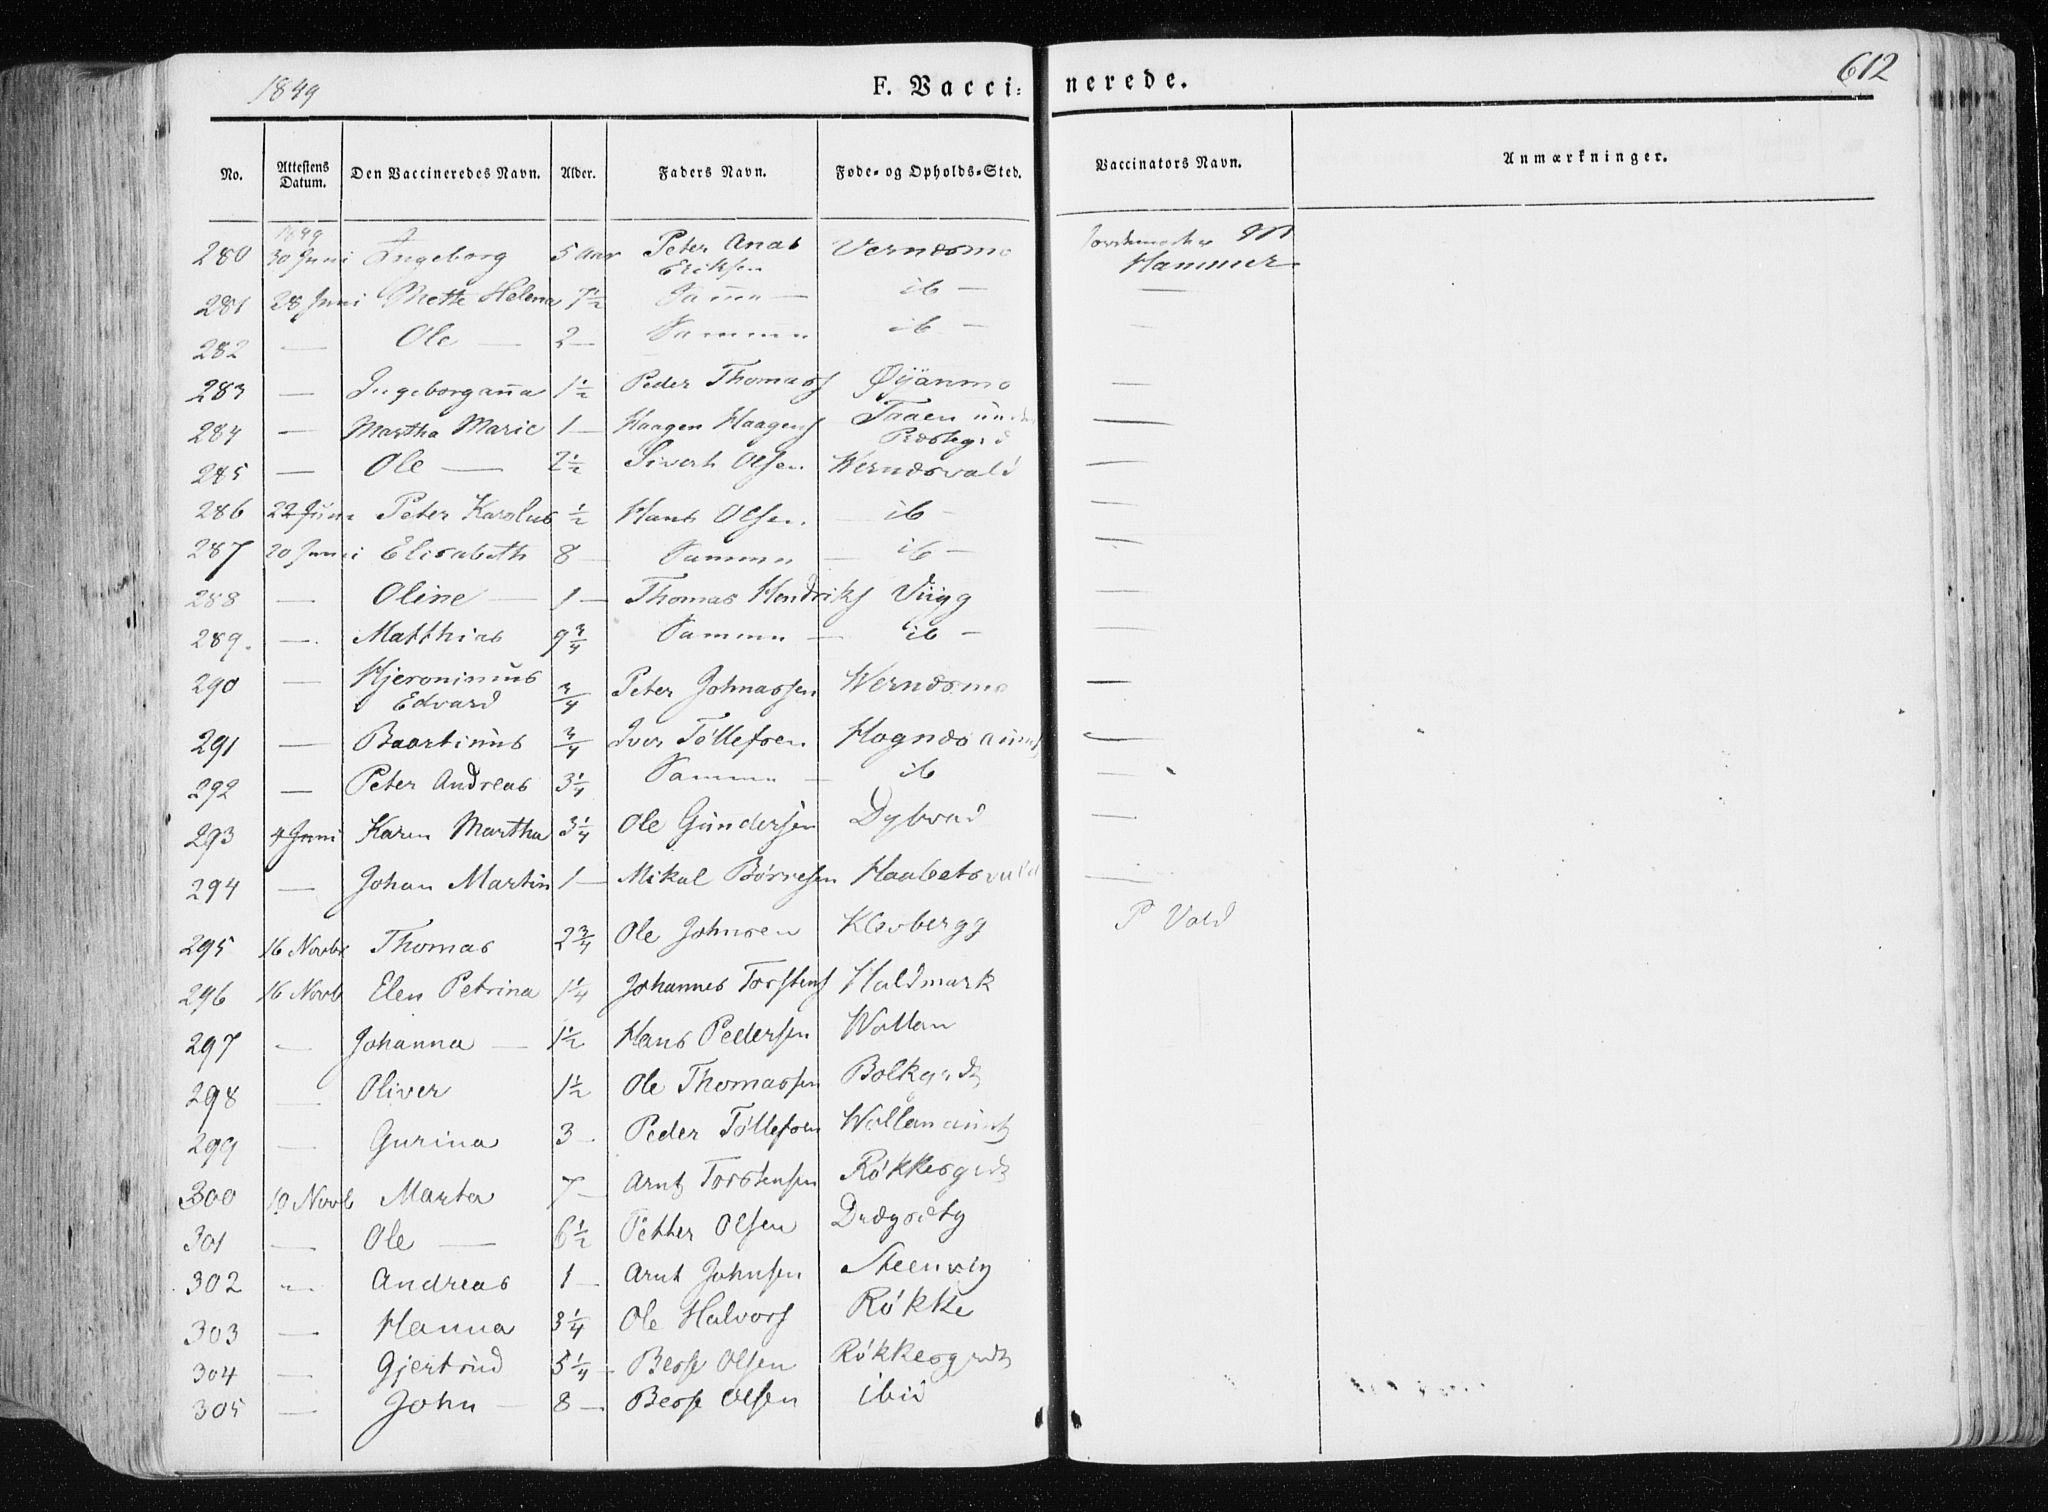 1849 F. Vaccinerede. 612
No. Attestens Datum. Den Vaccineredes Navn. Alder. Faders Navn. Føde- og Opholds-Sted. Vaccinators Navn. Anmærkninger.
1849
280 30 Juni Ingeborg 5 Aar Peter Anas Eriksen Værnæsmo Jordemoder M Hammer
281 28 Juni Mette Helena 7½ Samme — ib — —
282 — Ole — 2 — Samme ib — —
283 — Ingeborganna 1½ Peder Thomass Øyanmo —
284 — Martha Marie 1 — Haagen Haagens Taaen under Præstegrd —
285 — Ole — 2½ Sivert Olsen Wernæsvald —
286 22 Juni Peter Karolus ½ Hans Olsen — ib — —
287 20 Juni Elisabeth 8 — Samme — ib — —
288 — Oline — 1 — Thomas Hendriks Viigg —
289. — Matthias 9¾ Samme — ib — —
290 — Hjeronimus Edvard ¾ Peter Johnassen Wernæsmo —
291 — Baartinus ¾ Iver Tollefsen Hognæsaunet —
292 — Peter Andreas 3¼ Samme — ib —
293 4 Juni Karen Martha 3¼ Ole Gundersen Dybvad —
294 — Johan Martin 1 — Mikal Børresen Haabetsvald —
295 16 Novbr Thomas 2¾ Ole Johnsen Klevbergg P Vold
296 16 Novb Elen Petrina 1¼ Johannes Torstens Haldmark
297 — Johanna — 1½ Hans Pedersen Wollan
298 — Oliver 1½ Ole Thomassen Bolkgrdt
299 — Gurina 3 — Peder Tollefsen Wollanaunt
300 10 Novb Marta 7 — Arnt Torstensen Røkkesgrdt
301 — Ole — 6½ Petter Olsen
302 — Andreas 1 — Arnt Johnsen Steenvig
303 — Hanna 3¼ Ole Halvors Røkke
304 — Gjertrud 5¼ — Berse Olsen Røkkesgrdt
305 — John — 8 — Berse Olsen ibid